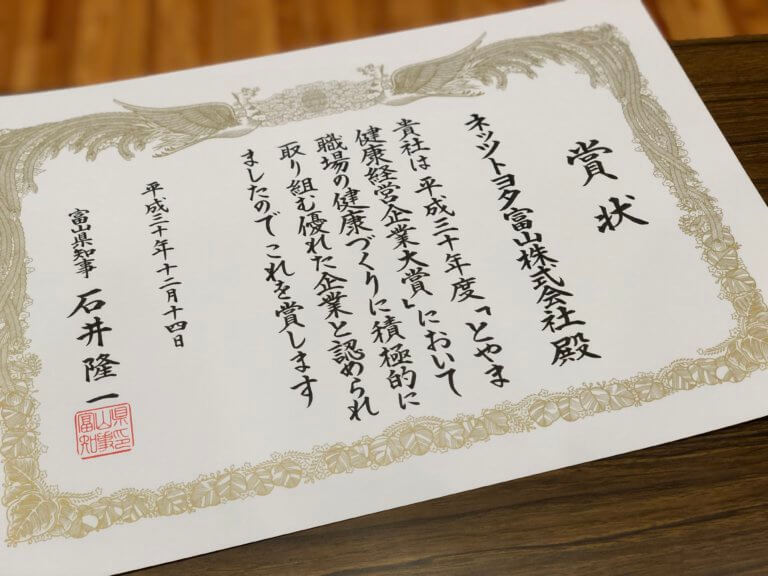 賞状
ネッツトヨタ富山株式会社殿
貴社は平成三十年度「とやま
健康経営企業大賞」において
職場の健康づくりに積極的に
取り組む優れた企業と認められ
ましたのでこれを賞します
平成三十年十二月十四日
富山県知事 石井隆一
富山県知事印